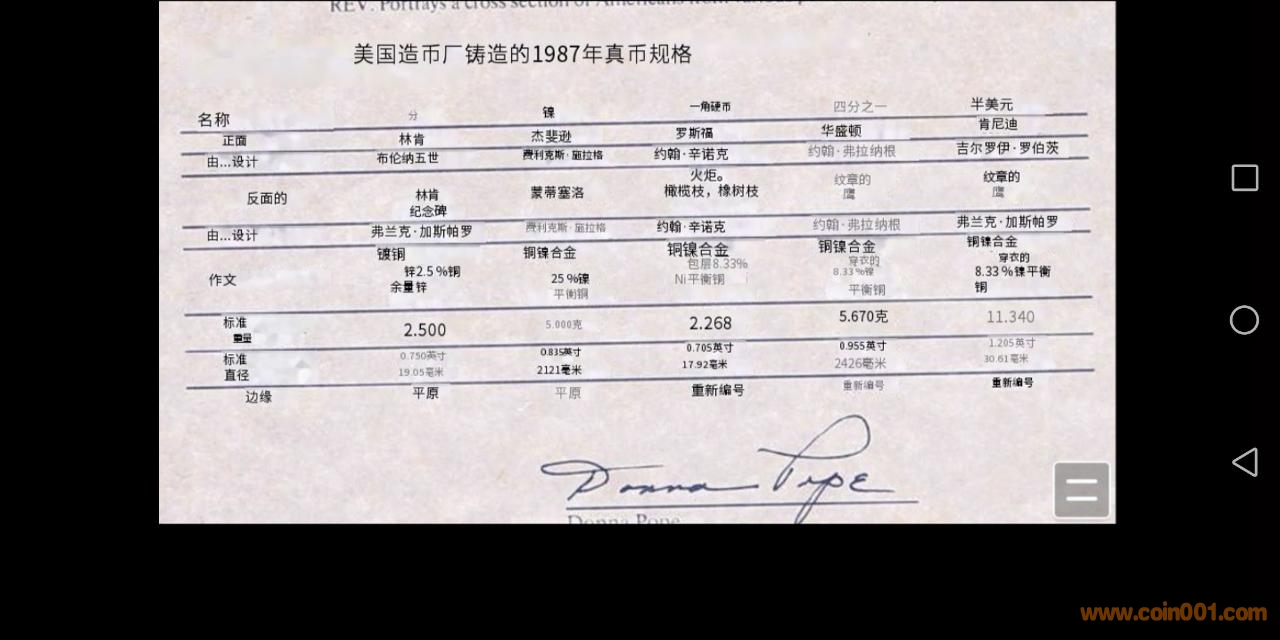 REV. Portrays a cross section of Americans from various p
美国造币厂铸造的1987年真币规格
名称 分 镍 一角硬币 四分之一 半美元
正面 林肯 杰斐逊 罗斯福 华盛顿 肯尼迪
由...设计 布伦纳五世 费利克斯·施拉格 约翰·辛诺克 约翰·弗拉纳根 吉尔罗伊·罗伯茨
反面的 林肯 蒙蒂塞洛 火炬。 纹章的 纹章的
纪念碑 橄榄枝，橡树枝 鹰 鹰
由...设计 弗兰克·加斯帕罗 费利克斯·施拉格 约翰·辛诺克 约翰·弗拉纳根 弗兰克·加斯帕罗
作文 镀铜 铜镍合金 铜镍合金 铜镍合金 铜镍合金
锌2.5%铜 25%镍 包层8.33% 穿衣的 穿衣的
余量锌 平衡铜 Ni平衡铜 8.33%镍 8.33%镍平衡
平衡铜 铜
标准 2.500 5.000克 2.268 5.670克 11.340
重量
标准 0.750英寸 0.835英寸 0.705英寸 0.955英寸 1.205英寸
直径 19.05毫米 2121毫米 17.92毫米 2426毫米 30.61毫米
边缘 平原 平原 重新编号 重新编号 重新编号
Donna Pope
Donna Pope
www.coin001.com